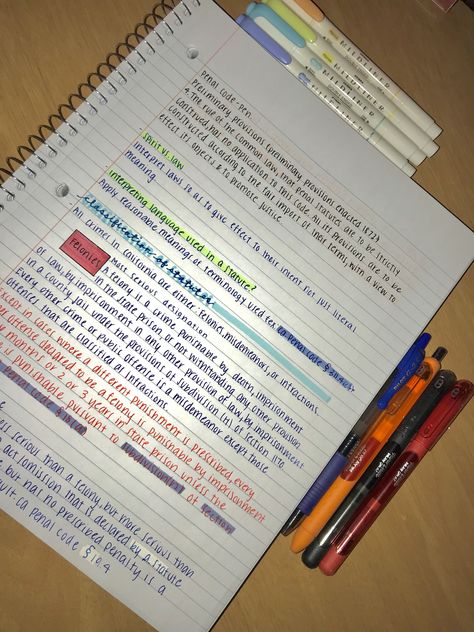 Penal Code-Pen
Preliminary provisions (preliminary provisions enacted 1872)
4. The rule of the common law, that penal statutes are to be strictly
construed, has no application to this code. All its provisions are to be
constructed according to the fair import of their terms, with a view to
effect its objects & to promote justice
Spirit vs. law
interpret laws so as to give effect to their intent for just literal
meaning
Interpreting language used in a statute?
Apply reasonable meaning of terminology used
ca Penal code §
Classification of statutes
All crimes in California are either felonies, misdemeanors, or infractions.
Felonies
Most serious designation
A felony is a crime punishable by death, imprisonment
in the state prison, or not withstanding any other provision
of law, by imprisonment
in a county jail under the provisions of subdivision (h) of section 1170
Every other crime or public offense is a misdemeanor except those
offenses that are classified as infractions
Except in cases where a different punishment is prescribed, every
offense declared to be a felony is punishable by imprisonment
months, or 2 or 3 years in state prison unless the
is punishable pursuant to subdivision of section
Penal Code §
less serious than a felony, but more serious than
act (omission) that is declared by a statute
but has no prescribed penalty is a
ca Penal Code §19.4
MILDLINER
MILDLINER
MILDLINER
MILDLINER